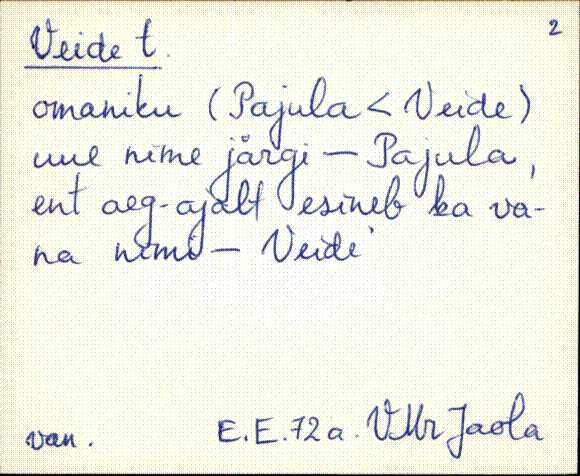 2
Veide t.
omaniku (Pajula < Veide)
uue nime järgi — Pajula,
ent aeg-ajalt esineb ka va-
na nimi — Veide
van. E.E.72a. VMr Jaola